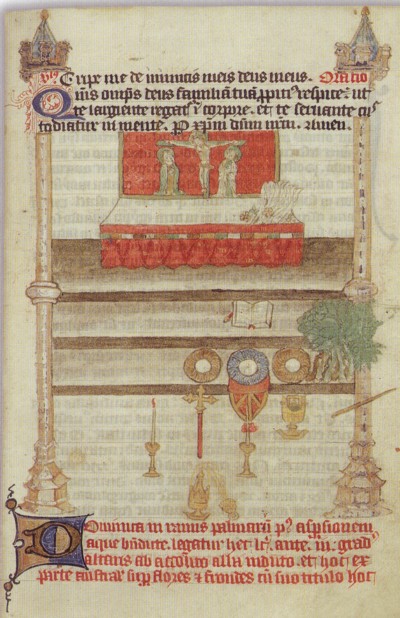 Eripe me de inimicis meis deus meus. Oratio
Qs omps deus familiā tuā ppiti' respice: ut
te largiente regat' ī corpore. et te seruante cus
todiatur in mente. P xpm dnm nrm. Amen.
Dominica in ramis palmarū p' aspsionem
aque bndicte. legatur hec lc̄. ante. in. grad'
altaris ab accolito alba induto. et hoc ex
parte austral' sup flores & frondes cū suo titulo hoc